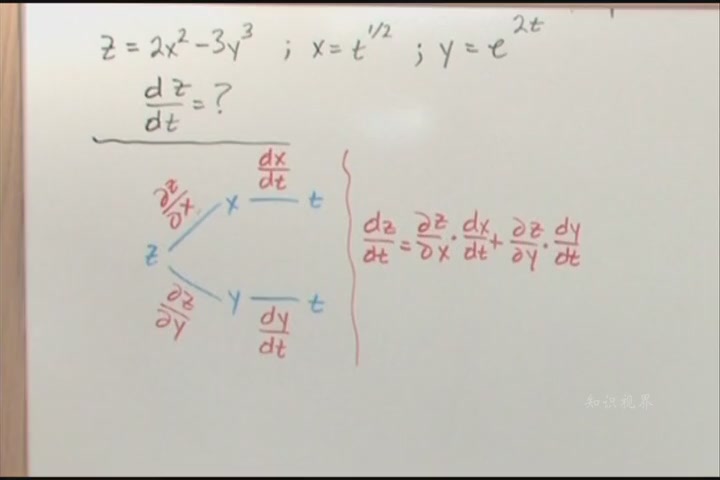 z = 2x² - 3y³ ; x = t^1/2 ; y = e^2t
dz/dt = ?
∂z/∂x x dx/dt t
z
∂z/∂y y dy/dt t
dz/dt = ∂z/∂x · dx/dt + ∂z/∂y · dy/dt
知识视界